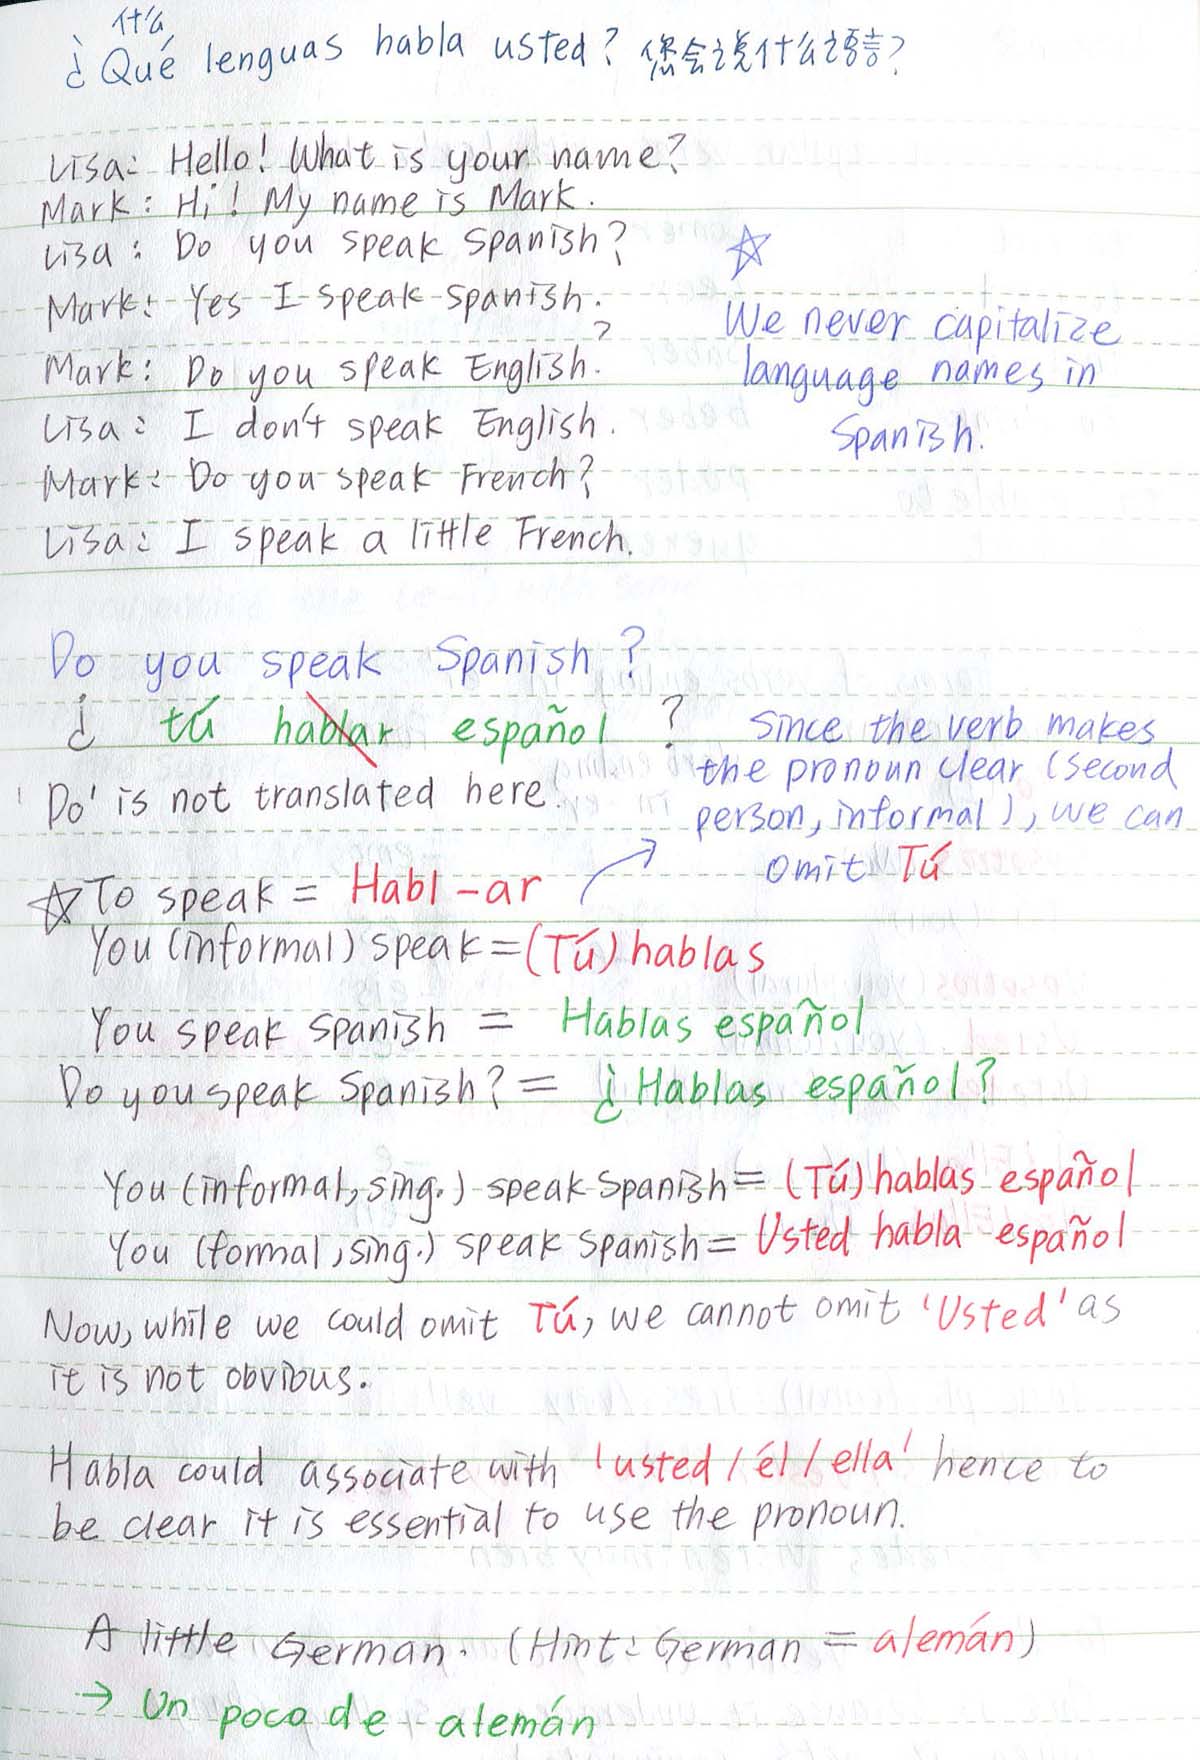 什么
¿Qué lenguas habla usted? 您会说什么语言?
Lisa: Hello! What is your name?
Mark: Hi! My name is Mark.
Lisa: Do you speak Spanish?
Mark: Yes I speak Spanish.
Mark: Do you speak English?
Lisa: I don't speak English.
Mark: Do you speak French?
Lisa: I speak a little French.
☆
We never capitalize
language names in
Spanish.
Do you speak Spanish?
¿ tú hablar español ?
'Do' is not translated here.
Since the verb makes
the pronoun clear (second
person, informal), we can
omit Tú
☆ To speak = Habl-ar
You (informal) speak = (Tú) hablas
You speak Spanish = Hablas español
Do you speak Spanish? = ¿Hablas español?
You (informal, sing.) speak Spanish = (Tú) hablas español
You (formal, sing.) speak Spanish = Usted habla español
Now, while we could omit Tú, we cannot omit 'Usted' as
it is not obvious.
Habla could associate with 'usted / él / ella' hence to
be clear it is essential to use the pronoun.
A little German. (Hint: German = alemán)
→ Un poco de alemán